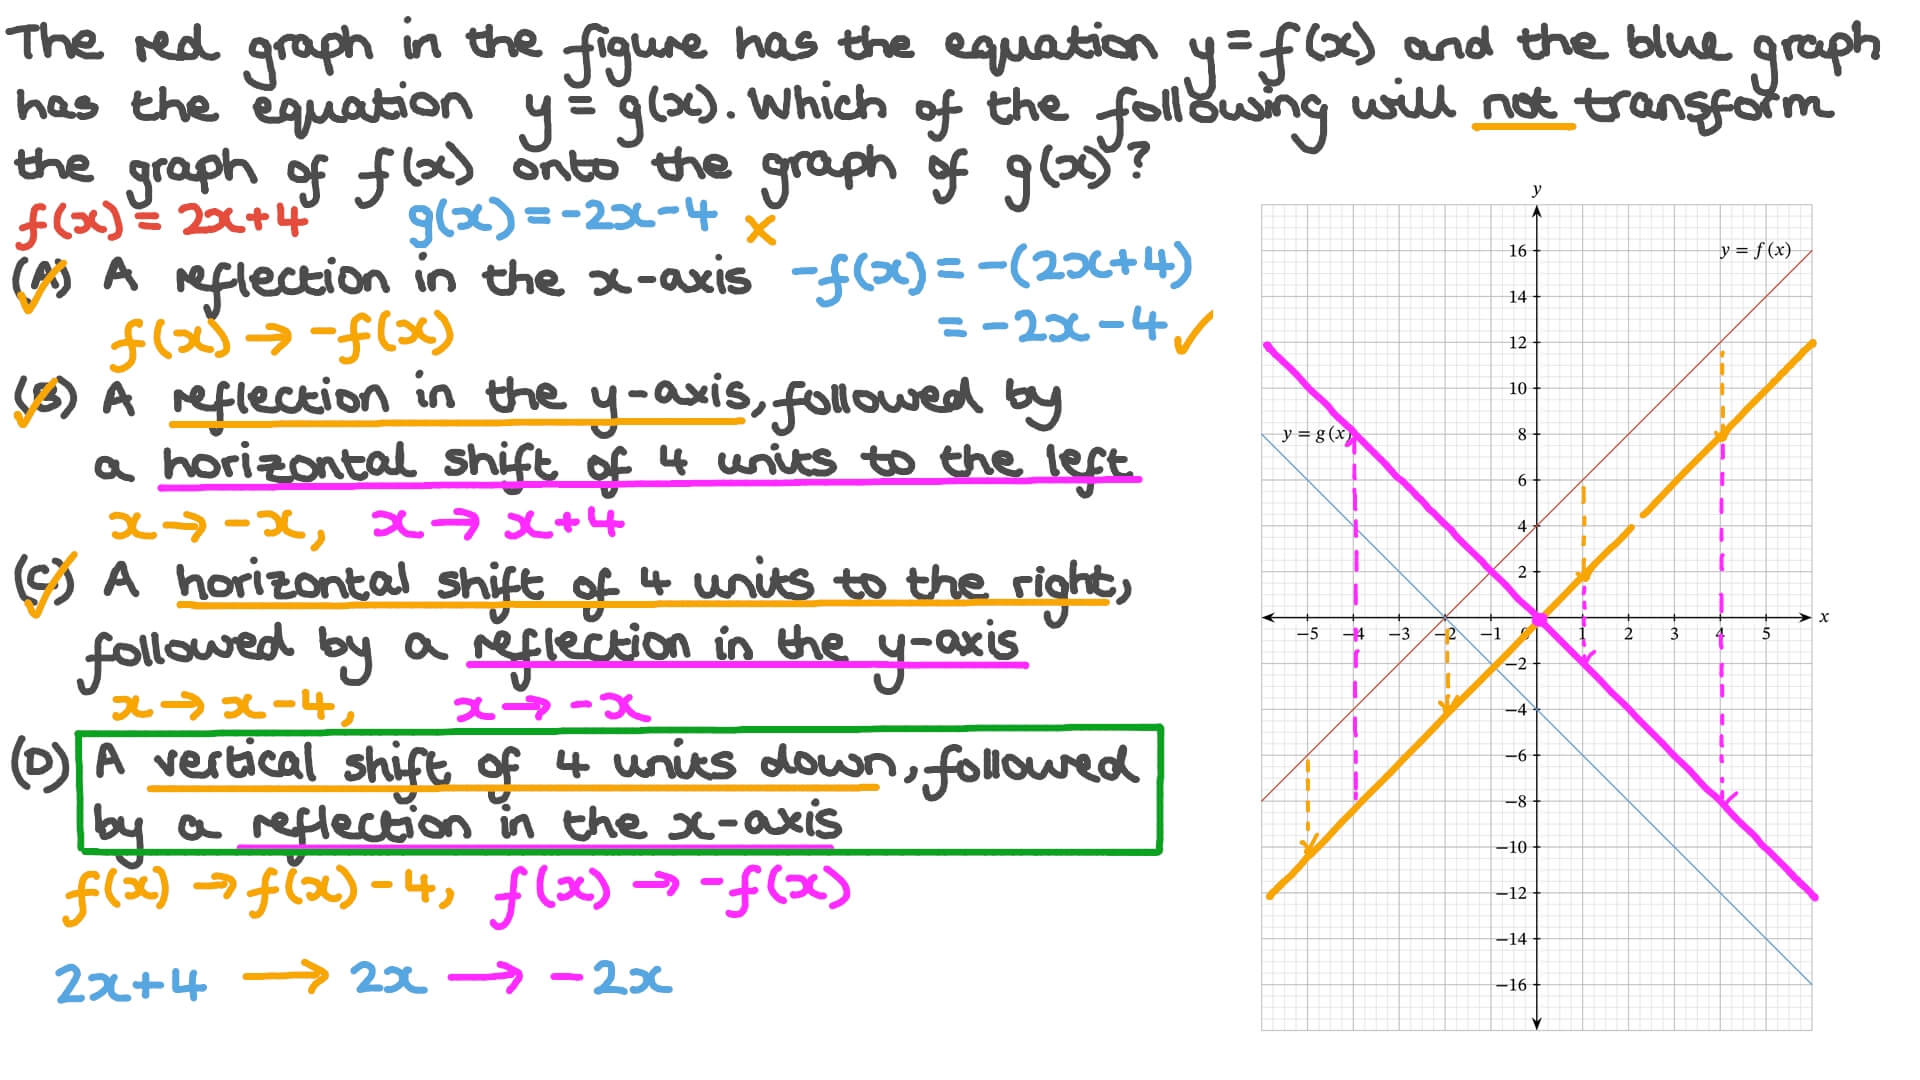 The red graph in the figure has the equation y=f(x) and the blue graph
has the equation y = g(x). Which of the following will not transform
the graph of f(x) onto the graph of g(x)?
f(x) = 2x+4 g(x) = -2x-4 ×
(A) A reflection in the x-axis -f(x) = -(2x+4)
f(x) → -f(x) = -2x-4 ✓
(B) A reflection in the y-axis, followed by
a horizontal shift of 4 units to the left
x → -x, x → x+4
(C) A horizontal shift of 4 units to the right,
followed by a reflection in the y-axis
x → x-4, x → -x
(D) A vertical shift of 4 units down, followed
by a reflection in the x-axis
f(x) → f(x)-4, f(x) → -f(x)
2x+4 → 2x → -2x
y
16
y = f(x)
14
12
10
y = g(x)
8
6
4
2
-5 -4 -3 -2 -1 0 1 2 3 4 5 x
-2
-4
-6
-8
-10
-12
-14
-16